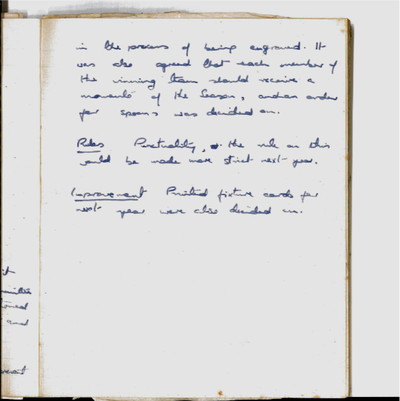 in the process of being engraved. It
was also agreed that each member of
the winning team should receive a
momento of the Season, and an order
for spoons was decided on.
Rules Punctuality, & the rule on this
would be made more strict next year.
Improvement Printed fixture cards for
next year were also decided on.
and